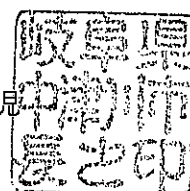 見
岐阜県
中津川市
長之印